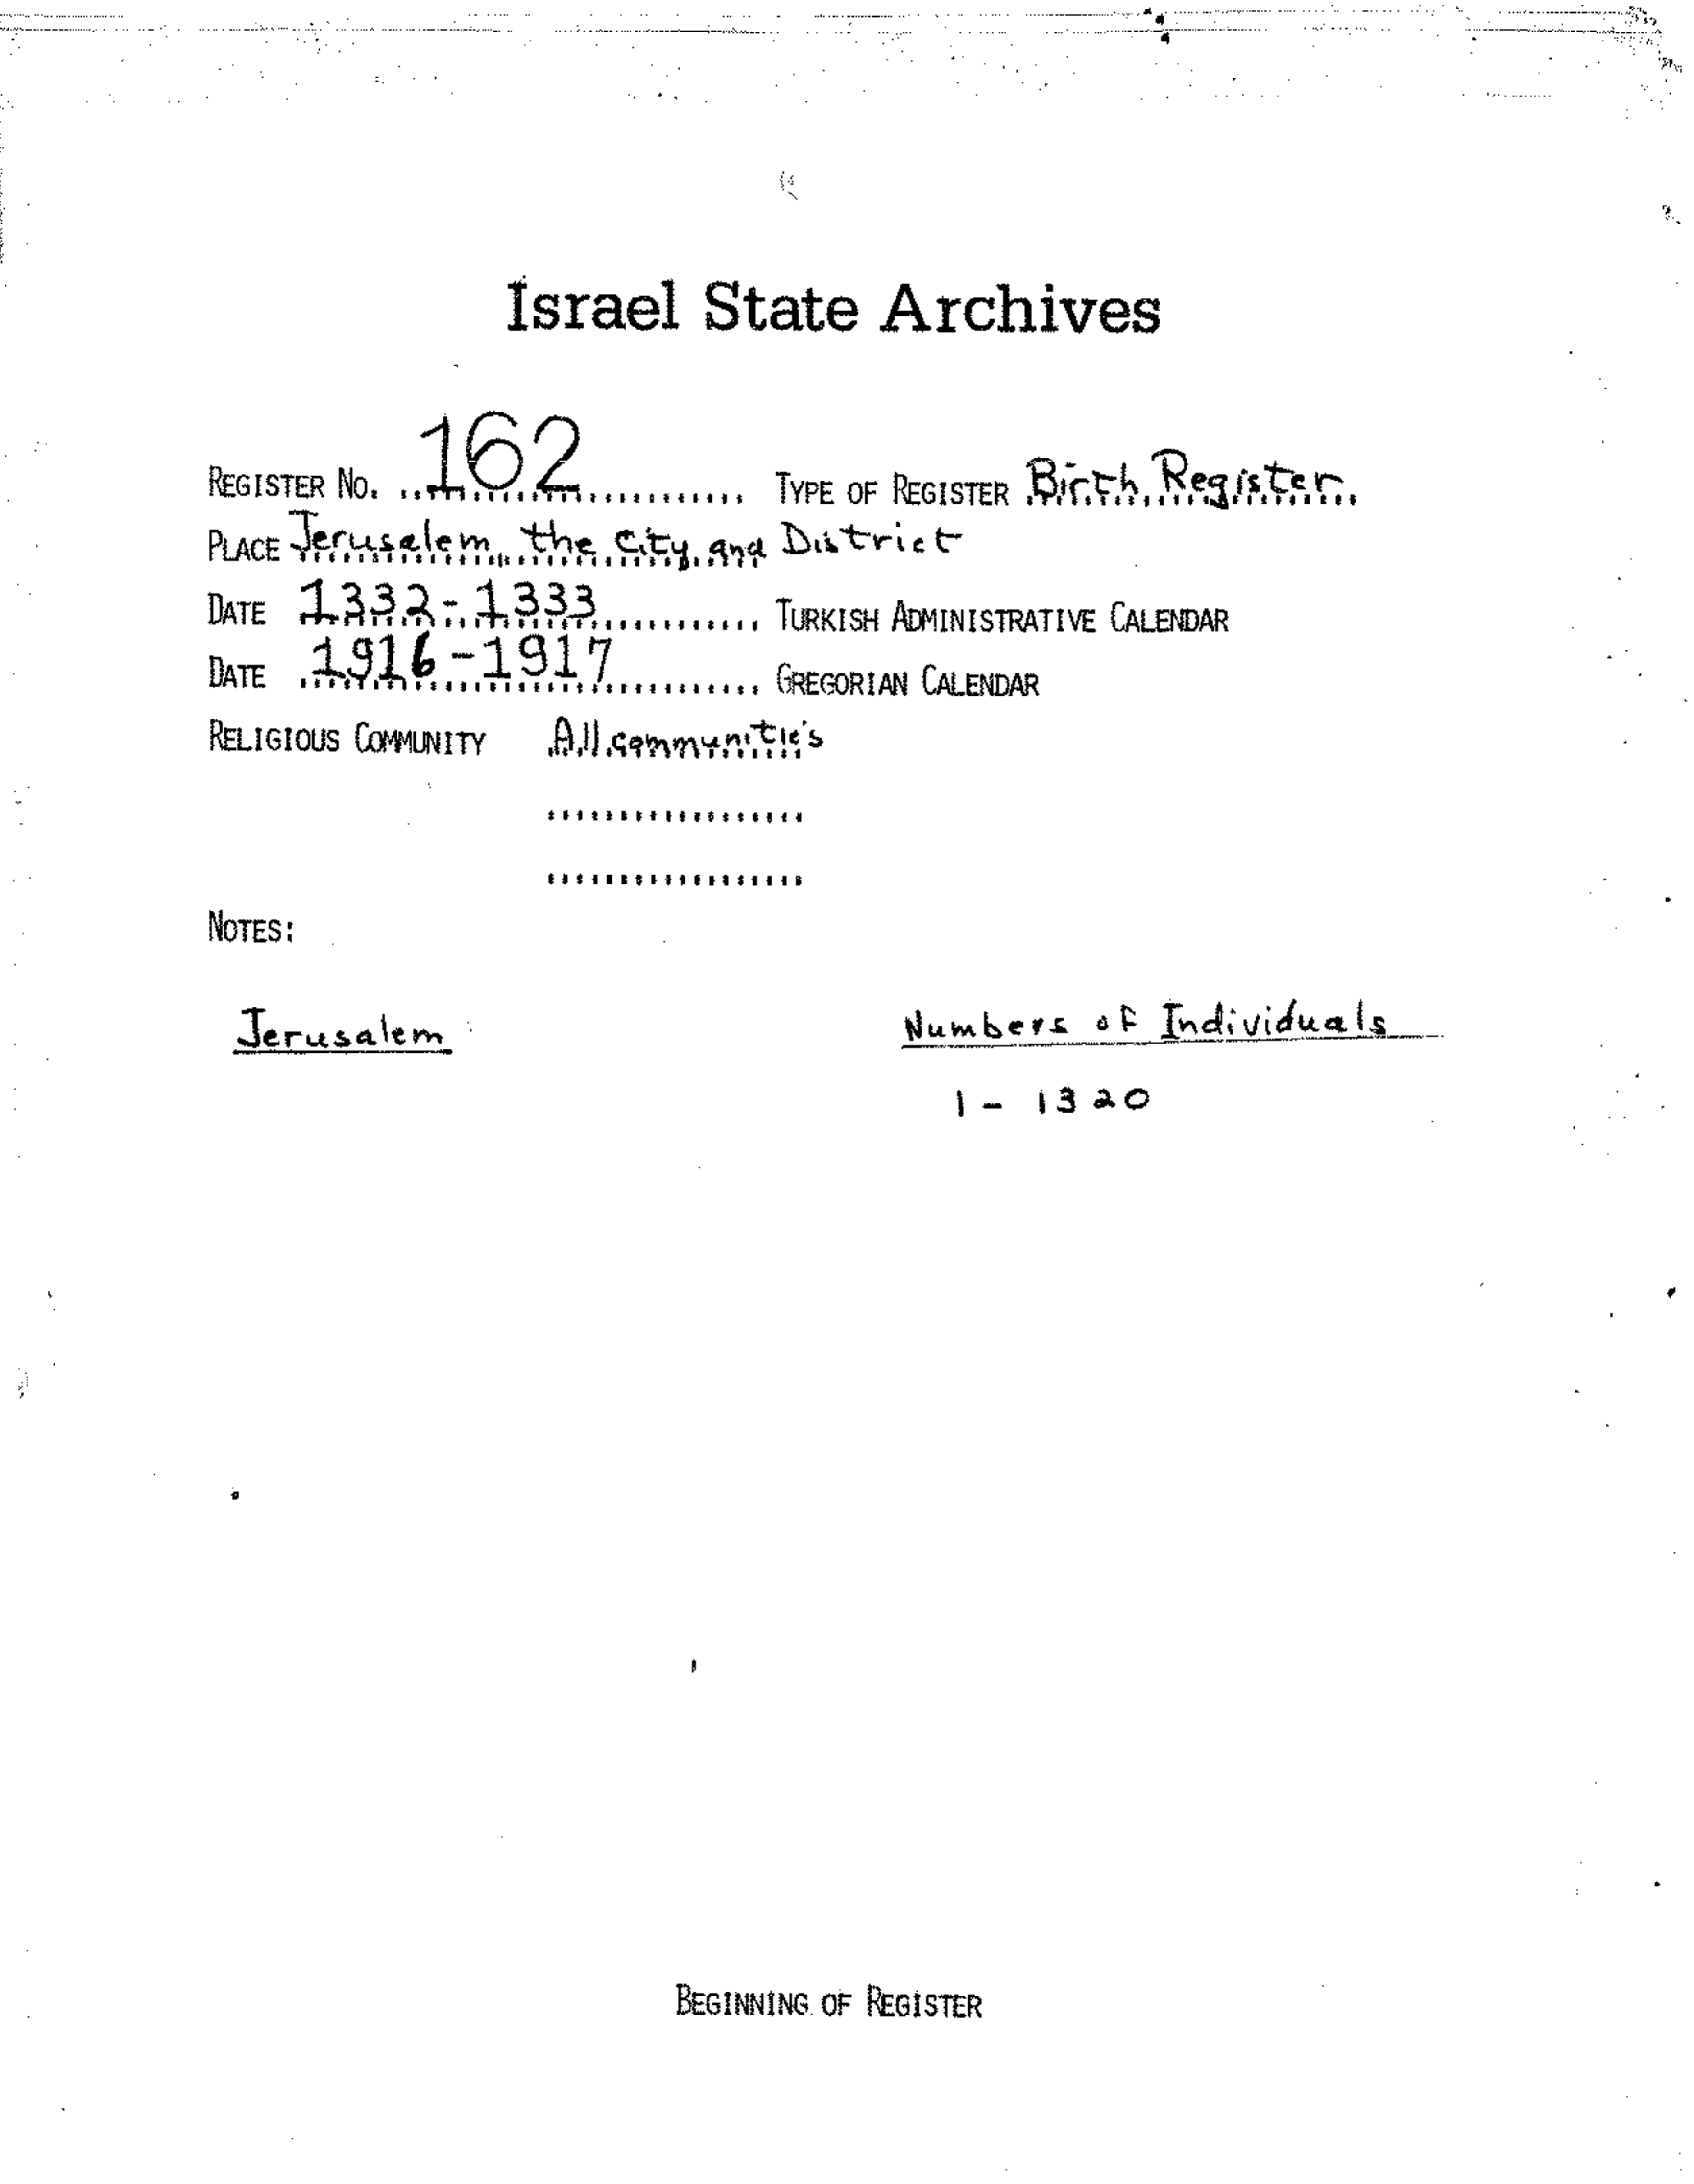 Israel State Archives
REGISTER NO. 162 TYPE OF REGISTER Birth Register
PLACE Jerusalem, the City and District
DATE 1332-1333 TURKISH ADMINISTRATIVE CALENDAR
DATE 1916-1917 GREGORIAN CALENDAR
RELIGIOUS COMMUNITY All communitie's
NOTES:
Jerusalem Numbers of Individuals
1 - 1320
BEGINNING OF REGISTER